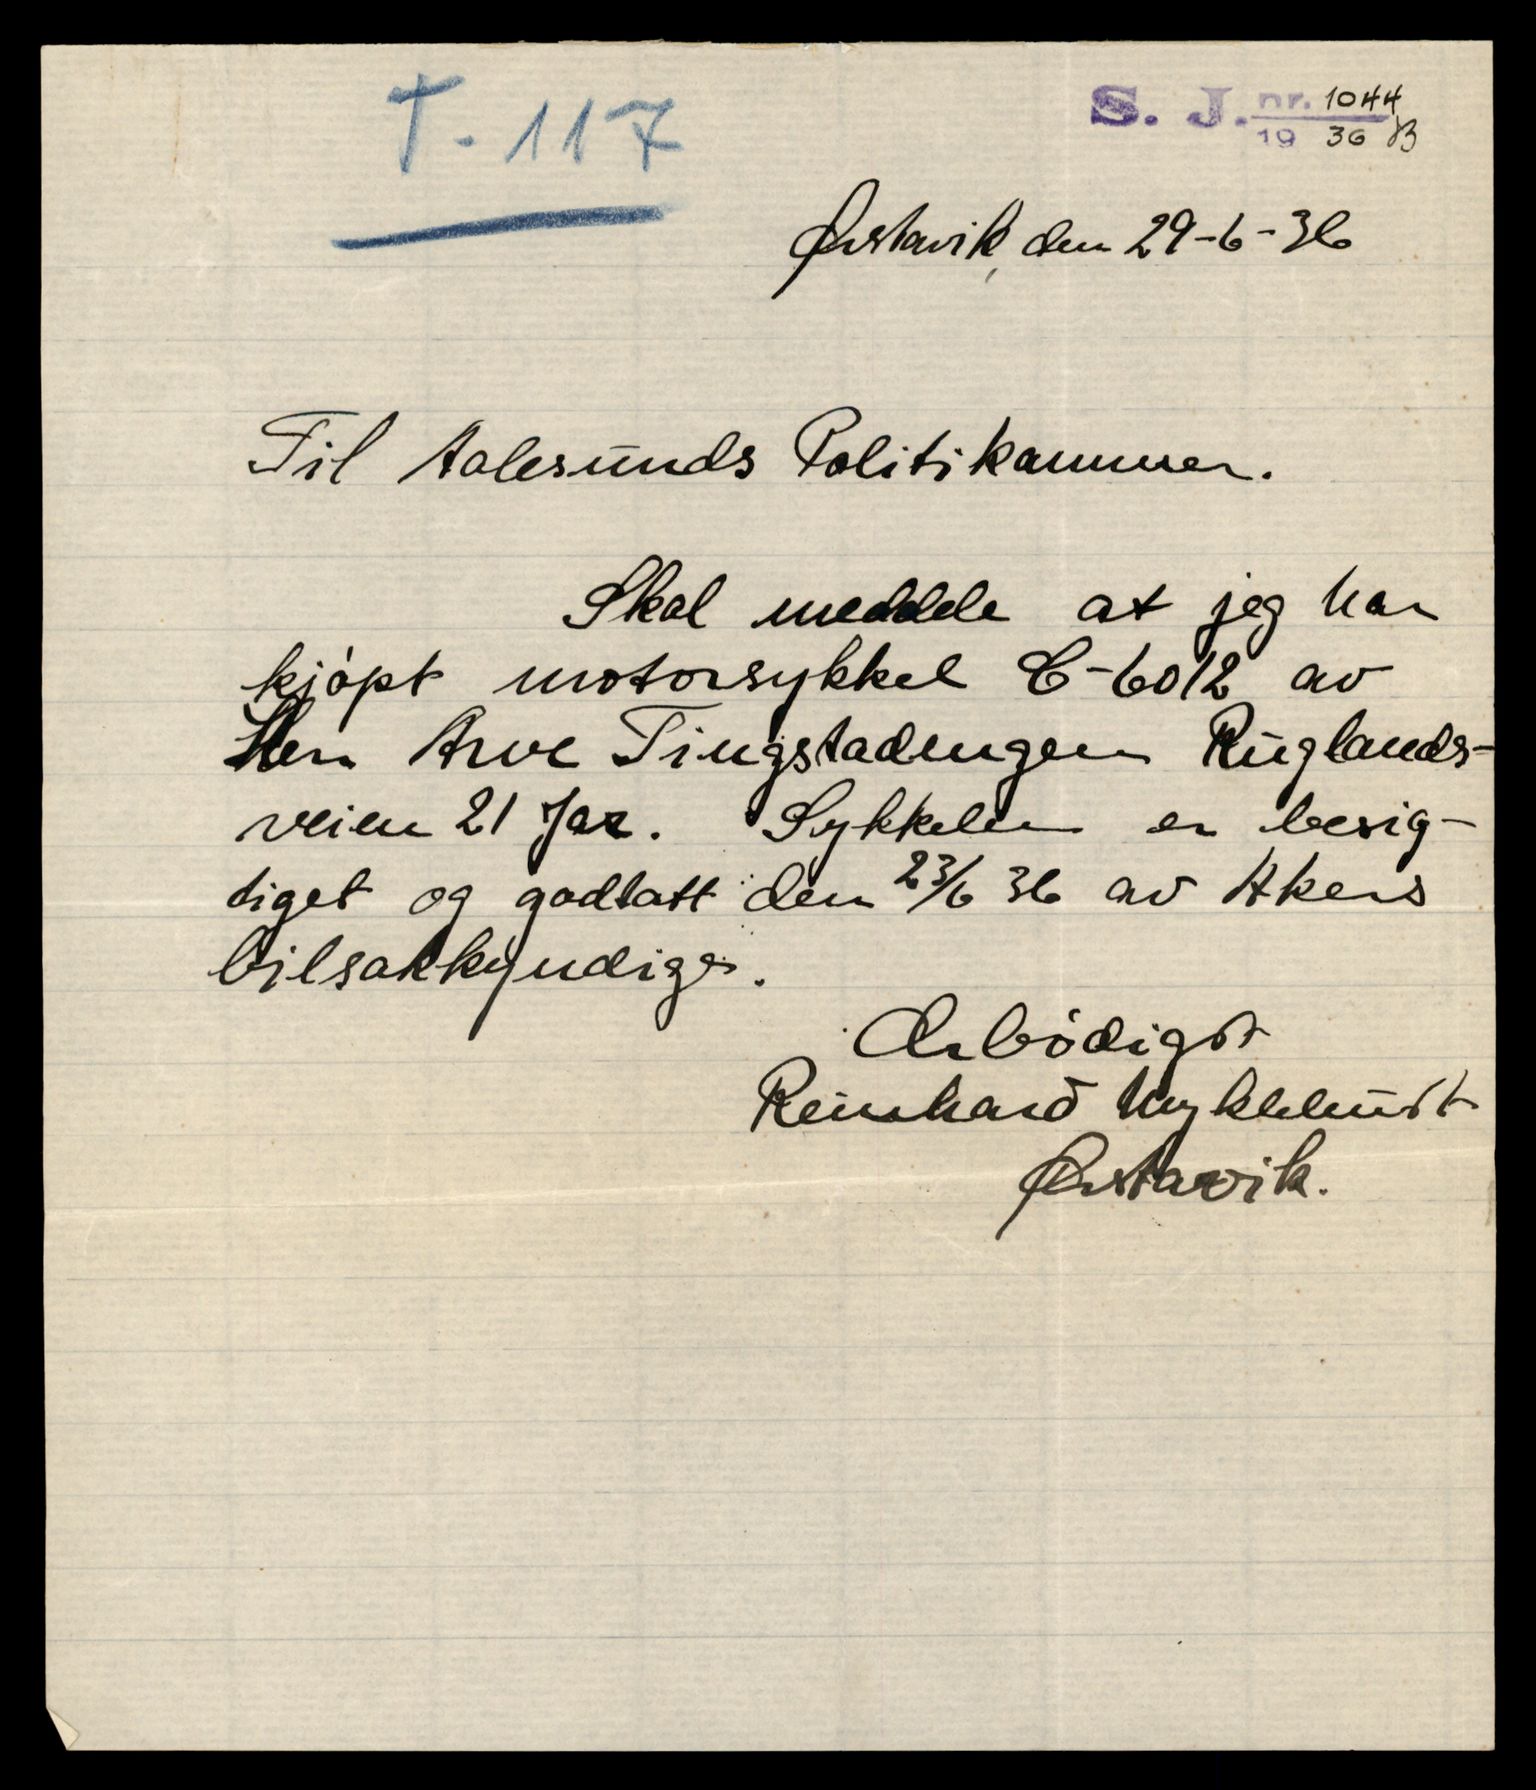 T-117
S. J. nr. 1044
19 36 B
Ørstavik, den 29-6-36
Til Aalesunds Politikammer.
Skal meddele at jeg har
kjøpt motorsykkel C-6012 av
Herr Arve Tingstadengen Ruglands-
veien 21 Jar. Sykkelen er besig-
tiget og godtatt den 23/6 36 av Akers
bilsakkyndige.
Ærbødigst
Reinhard Myklebust
Ørstavik.